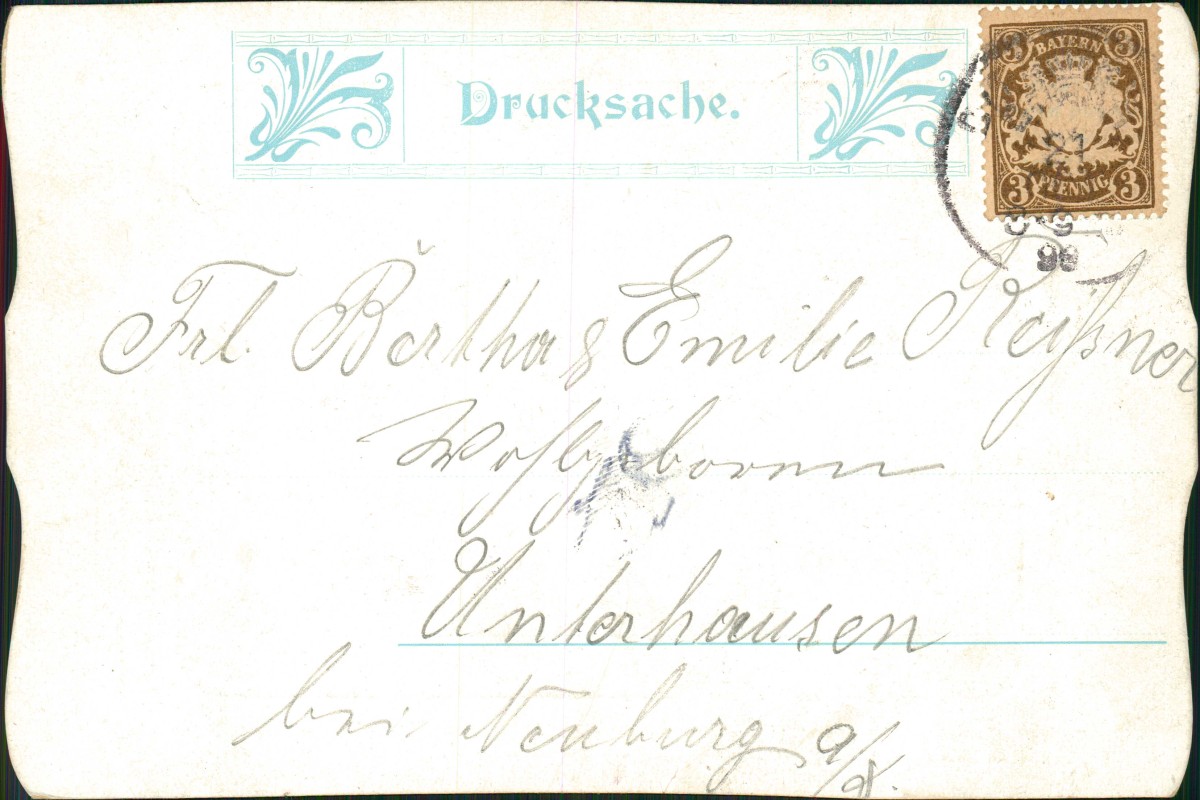 Drucksache.
3 BAYERN 3
3 PFENNIG 3
21
98
Frl. Bertha & Emilie Reißner
Wohlgeboren
Unterhausen
bei Neuburg a/